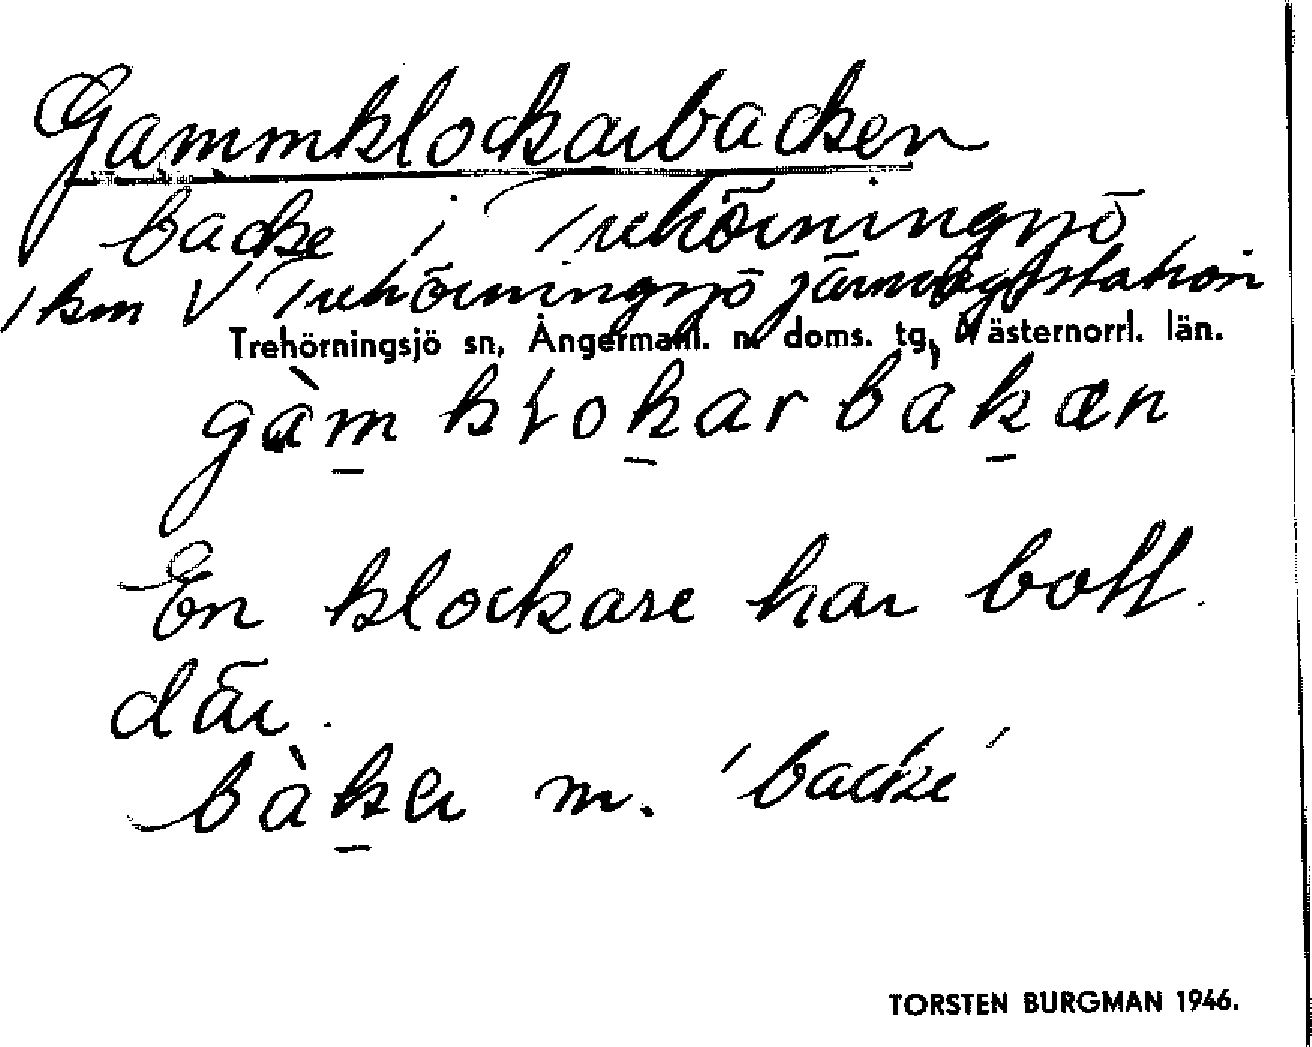 Gammklockarbacken
backe i Trehörningsjö
1 km V Trehörningsjö järnvägsstation
Trehörningsjö sn, Ångermanl. n. doms. tg, Västernorrl. län.
gàm̱ kłoḵar bàḵæn
En klockare har bott
där.
bàḵa m. 'backe'
TORSTEN BURGMAN 1946.